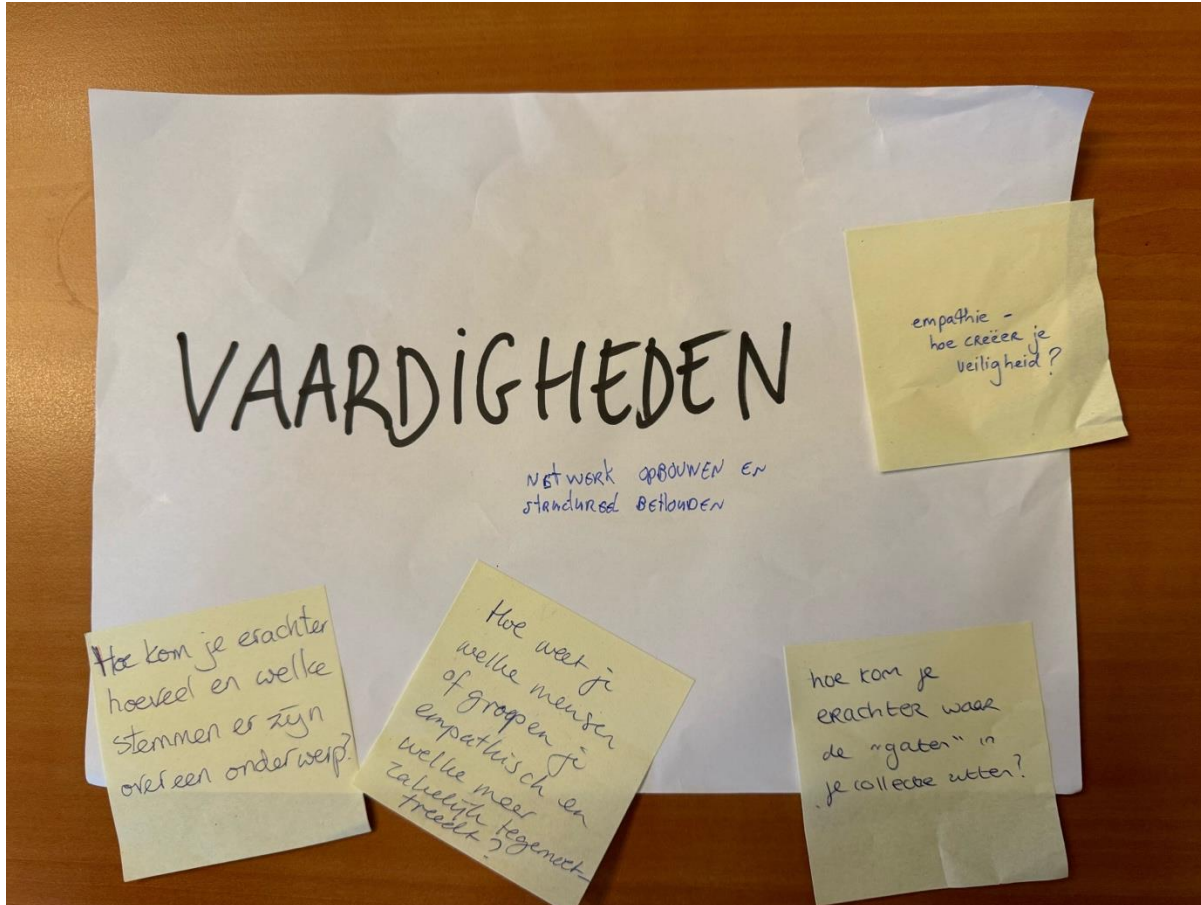 VAARDIGHEDEN
NETWERK OPBOUWEN EN
structureel BEHOUDEN
empathie -
hoe creëer je
veiligheid?
Hoe kom je erachter
hoeveel en welke
stemmen er zijn
over een onderwerp?
Hoe weet je
welke mensen
of groepen je
empathisch en
welke meer
zakelijk tegemoet-
treedt?
hoe kom je
erachter waar
de "gaten" in
je collectie zitten?